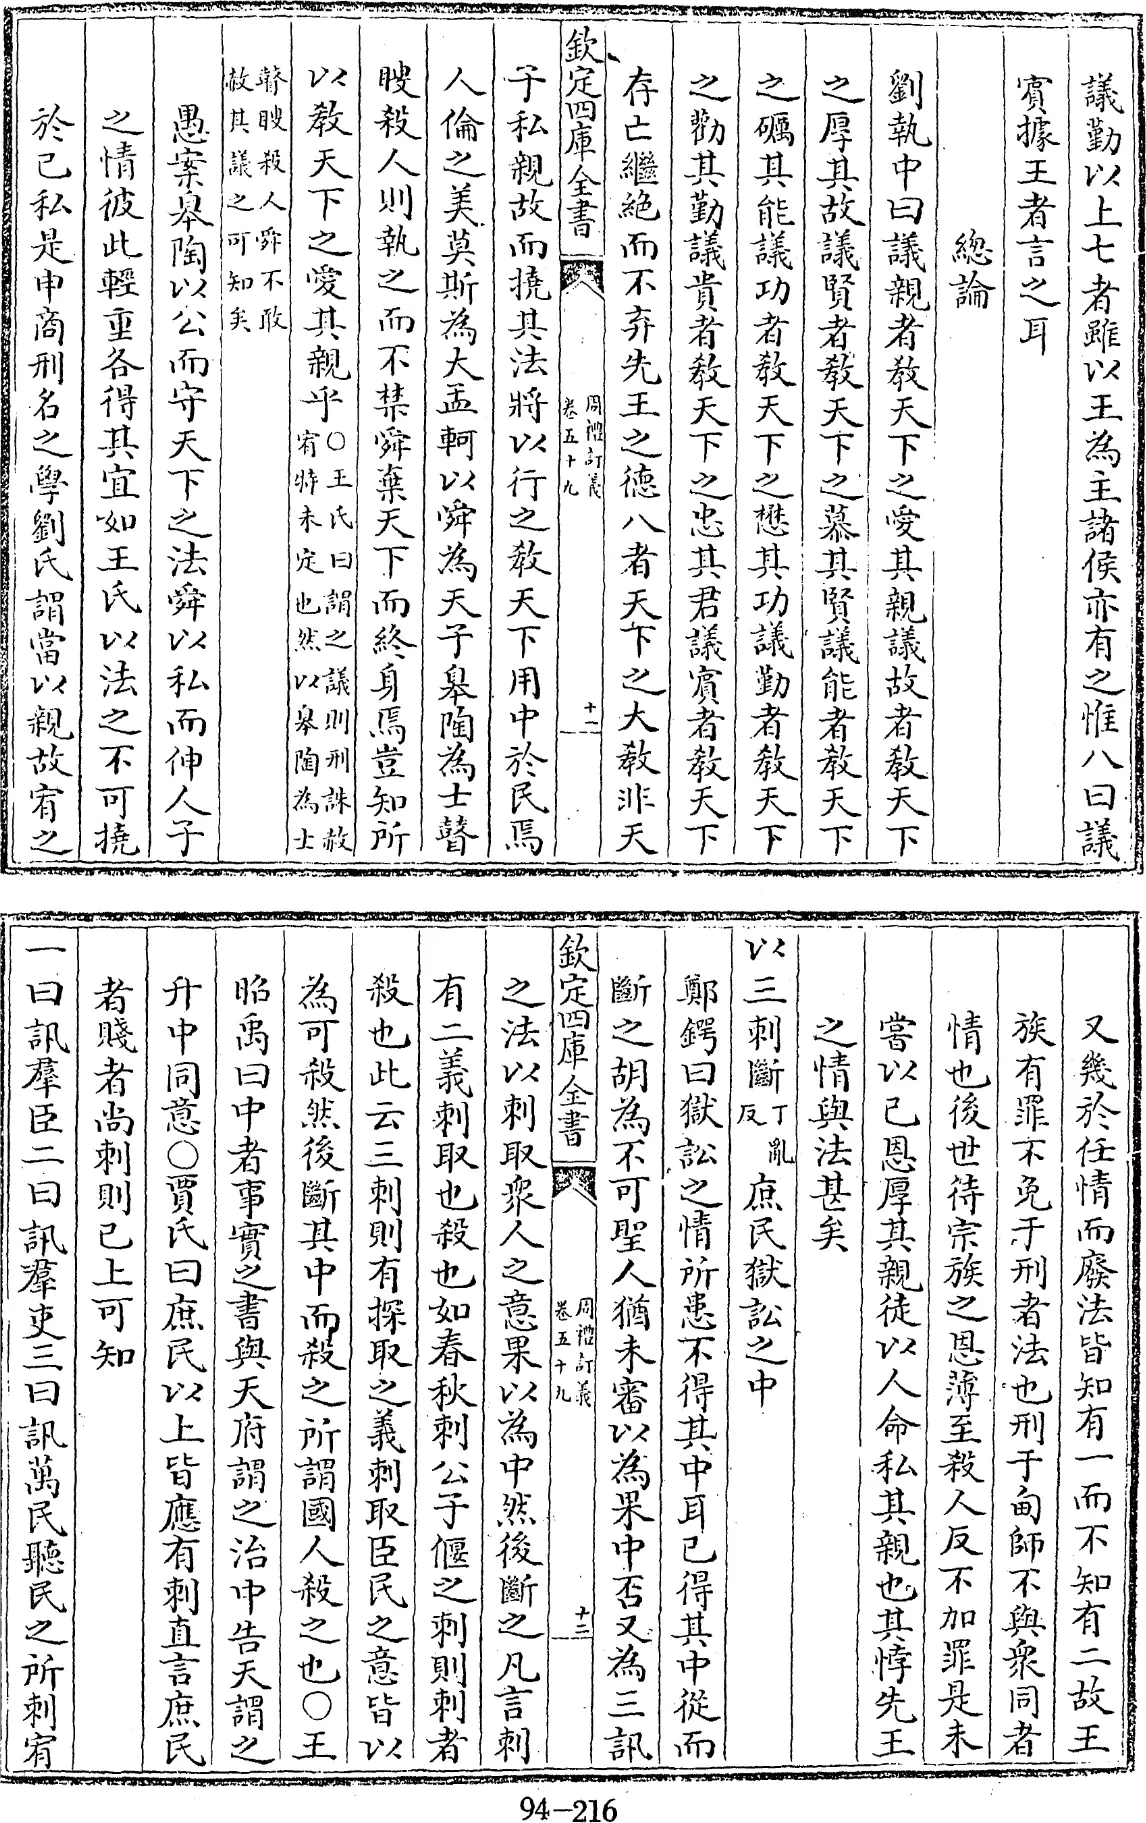 議勤以上七者雖以王為主諸侯亦有之惟八曰議
賓據王者言之耳
總論
劉執中曰議親者教天下之愛其親議故者教天下
之厚其故議賢者教天下之慕其賢議能者教天下
之礪其能議功者教天下之懋其功議勤者教天下
之勸其勤議貴者教天下之忠其君議賓者教天下
存亡繼絶而不弃先王之德八者天下之大教非天
欽定四庫全書
周禮訂義
卷五十九
十一
子私親故而撓其法將以行之教天下用中於民焉
人倫之美莫斯為大孟軻以舜為天子皋陶為士瞽
瞍殺人則執之而不禁舜棄天下而終身焉豈知所
以教天下之愛其親乎○王氏曰謂之議則刑誅赦
宥特未定也然以皋陶為士
瞽瞍殺人舜不敢
赦其議之可知矣
愚案皋陶以公而守天下之法舜以私而伸人子
之情彼此輕重各得其宜如王氏以法之不可撓
於己私是申商刑名之學劉氏謂當以親故宥之
又幾於任情而廢法皆知有一而不知有二故王
族有罪不免于刑者法也刑于甸師不與衆同者
情也後世待宗族之恩薄至殺人反不加罪是未
嘗以己恩厚其親徒以人命私其親也其悖先王
之情與法甚矣
以三刺斷丁亂
反庶民獄訟之中
鄭鍔曰獄訟之情所患不得其中耳已得其中從而
斷之胡為不可聖人猶未審以為果中否又為三訊
欽定四庫全書
周禮訂義
卷五十九
十二
之法以刺取衆人之意果以為中然後斷之凡言刺
有二義刺取也殺也如春秋刺公子偃之刺則刺者
殺也此云三刺則有探取之義刺取臣民之意皆以
為可殺然後斷其中而殺之所謂國人殺之也○王
昭禹曰中者事實之書與天府謂之治中告天謂之
升中同意○賈氏曰庶民以上皆應有刺直言庶民
者賤者尚刺則已上可知
一曰訊羣臣二曰訊羣吏三曰訊萬民聽民之所刺宥
94-216